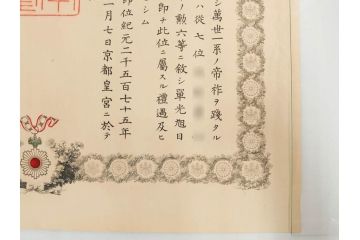 シ萬世一系ノ帝祚ヲ踐タル
ハ從七位
ノ勲六等ニ敍シ單光旭日
即チ此位ニ屬スル禮遇及ヒ
シム
即位紀元二千五百七十五年
一月七日京都皇宮ニ於テ